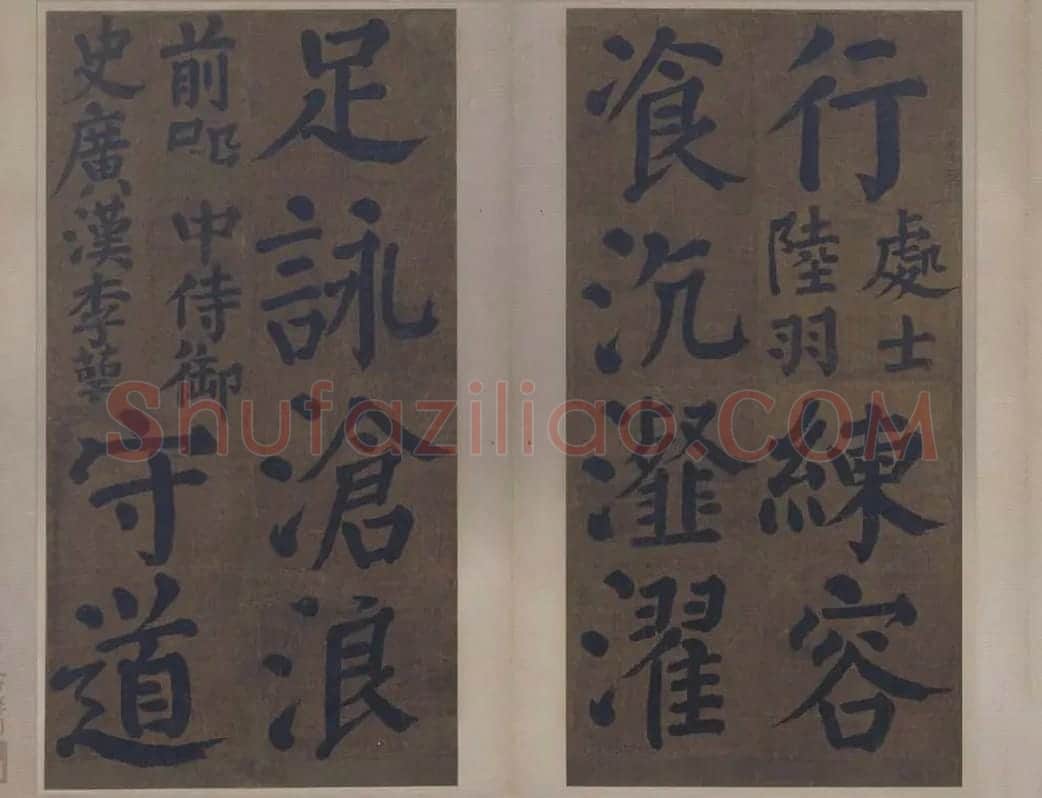 行
處士
陸羽
練容
飡沆瀣濯
足詠滄浪
前中侍御
史廣漢李萼
守道
Shufaziliao.COM